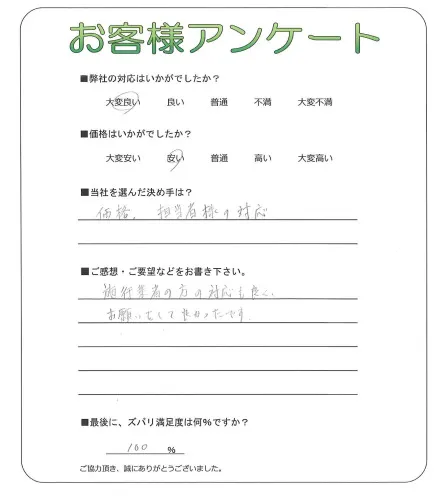 お客様アンケート
■弊社の対応はいかがでしたか?
大変良い 良い 普通 不満 大変不満
■価格はいかがでしたか?
大変安い 安い 普通 高い 大変高い
■当社を選んだ決め手は?
価格、担当者様の対応
■ご感想・ご要望などをお書き下さい。
施行業者の方の対応も良く、
お願いをして良かったです。
■最後に、ズバリ満足度は何%ですか?
100 %
ご協力頂き、誠にありがとうございました。